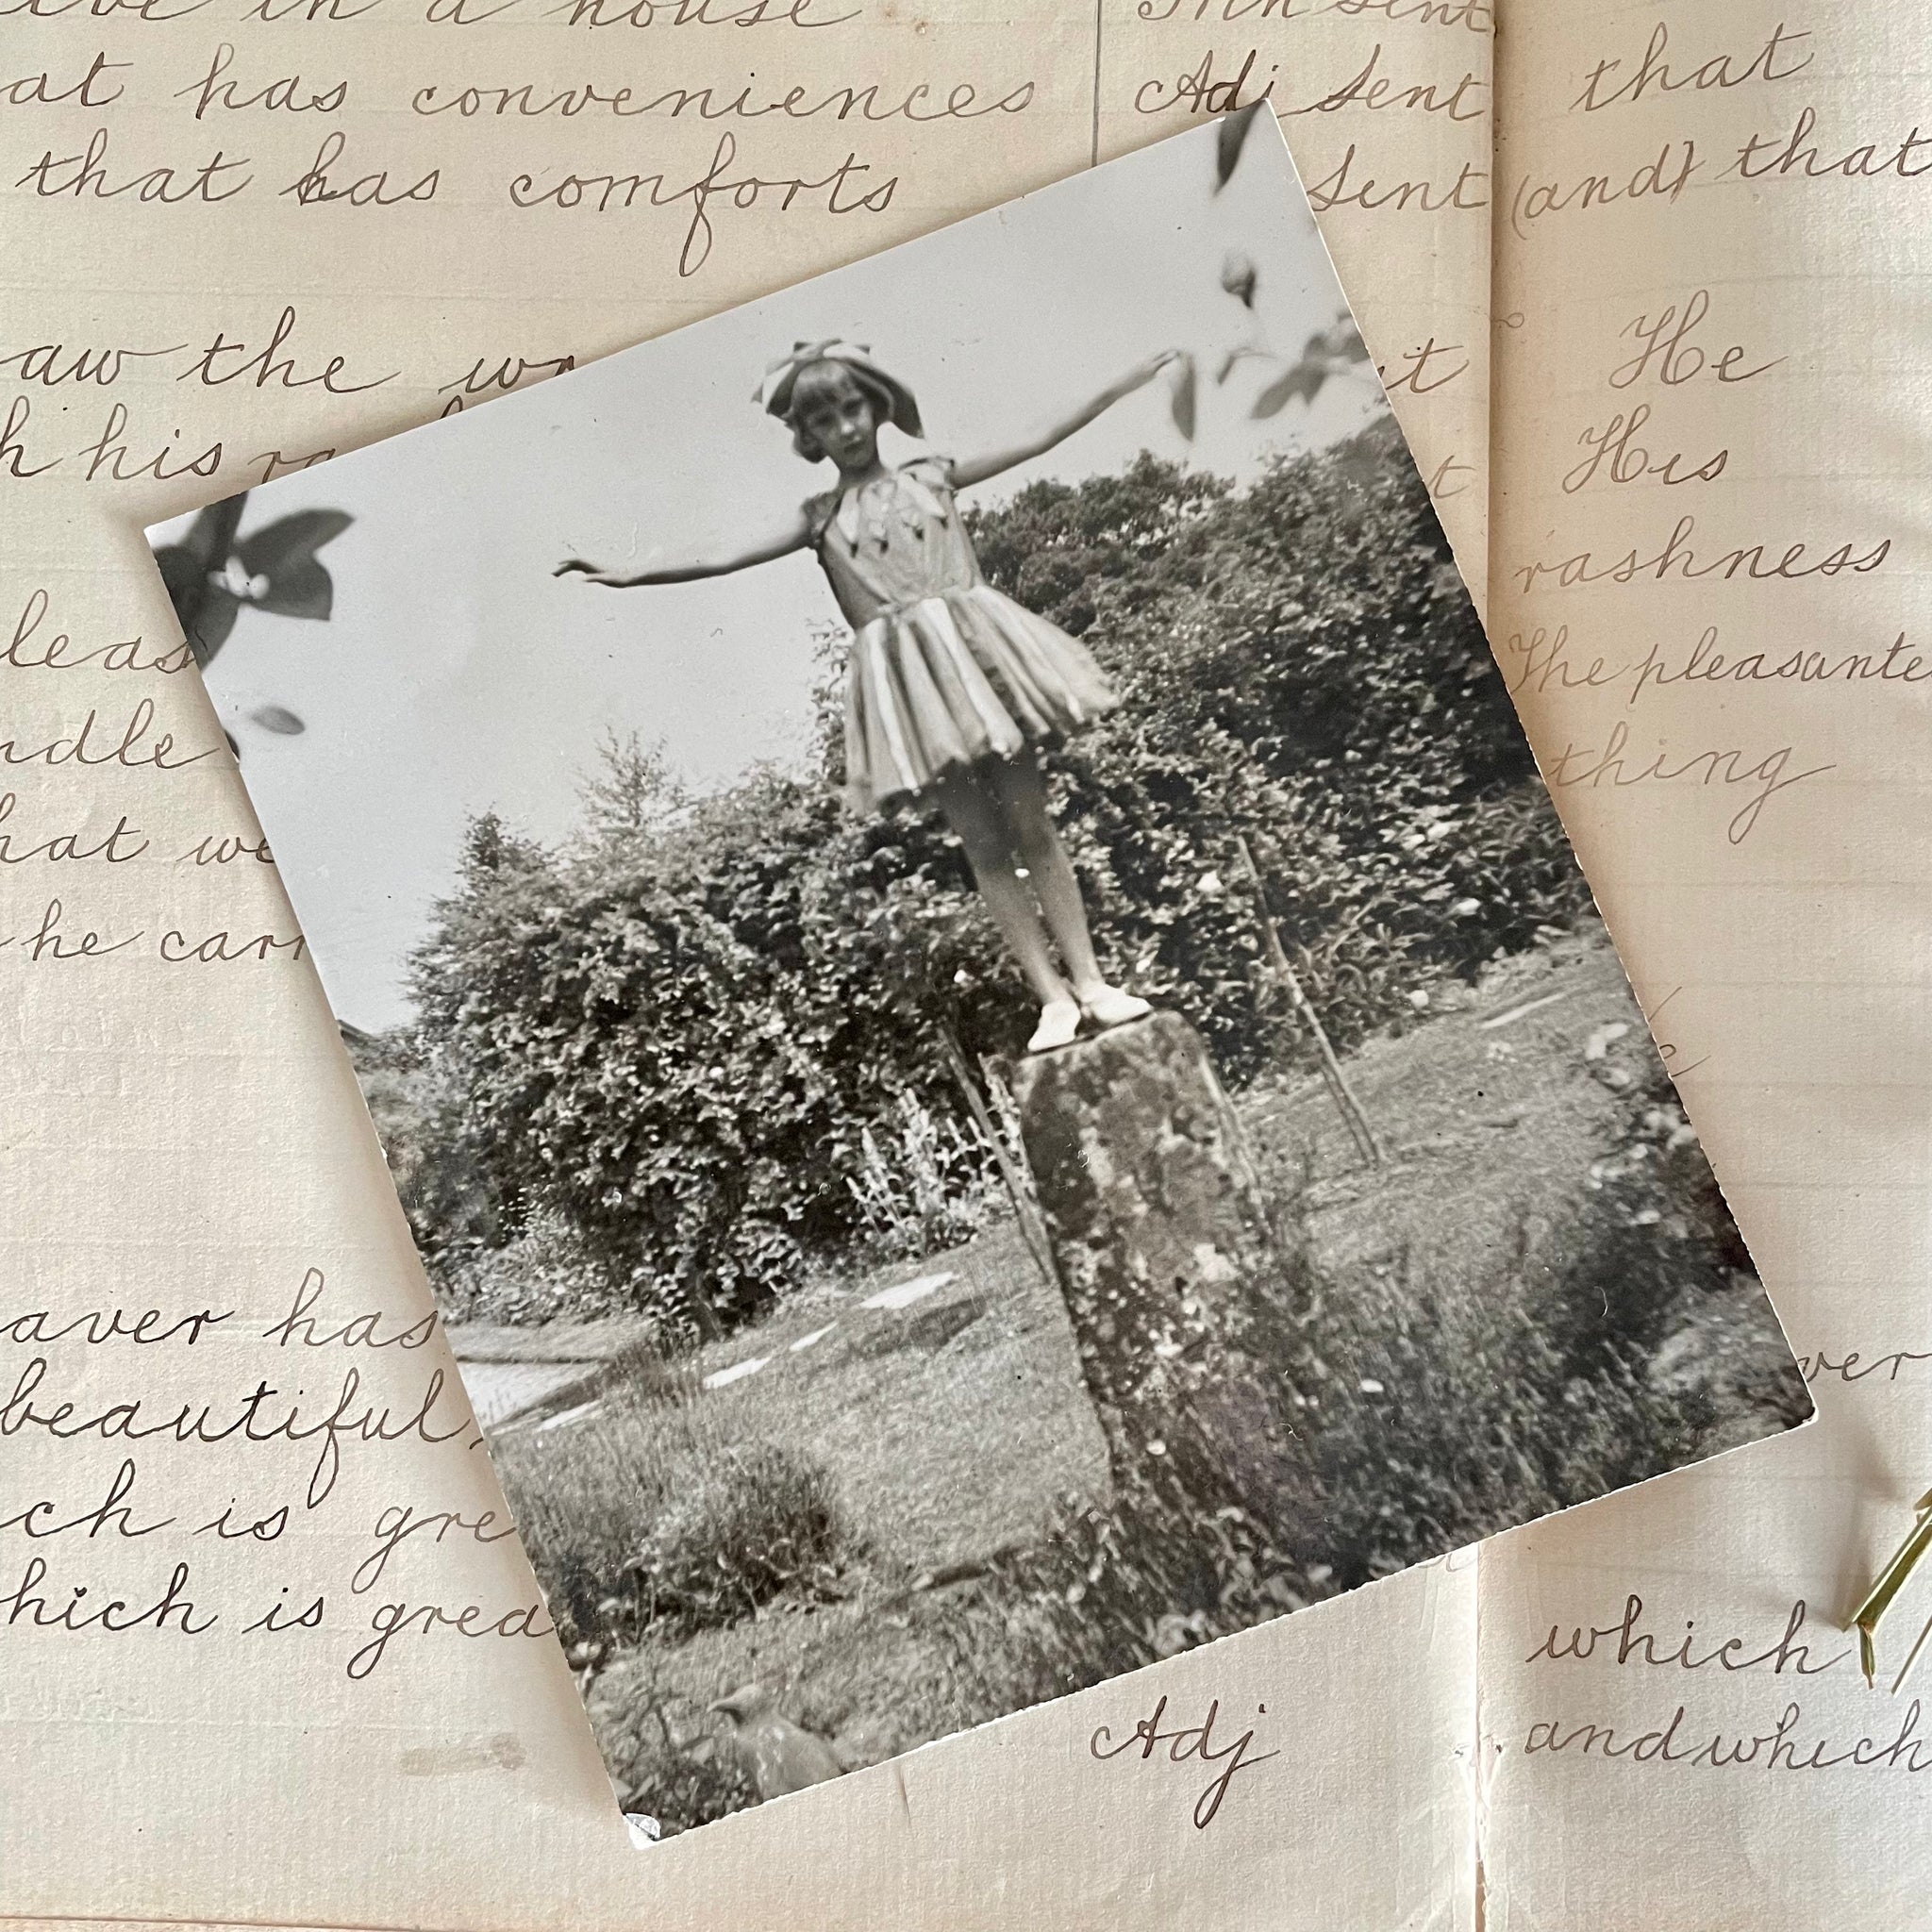 live in a house
at has conveniences
that has comforts
aw the
h his
leas
ndle
hat we
he carr
aver has
beautiful,
ch is gre
hich is grea
sent
Adj sent
sent
t
t
Adj
that
(and) that
He
His
rashness
The pleasante
thing
ver
which
and which